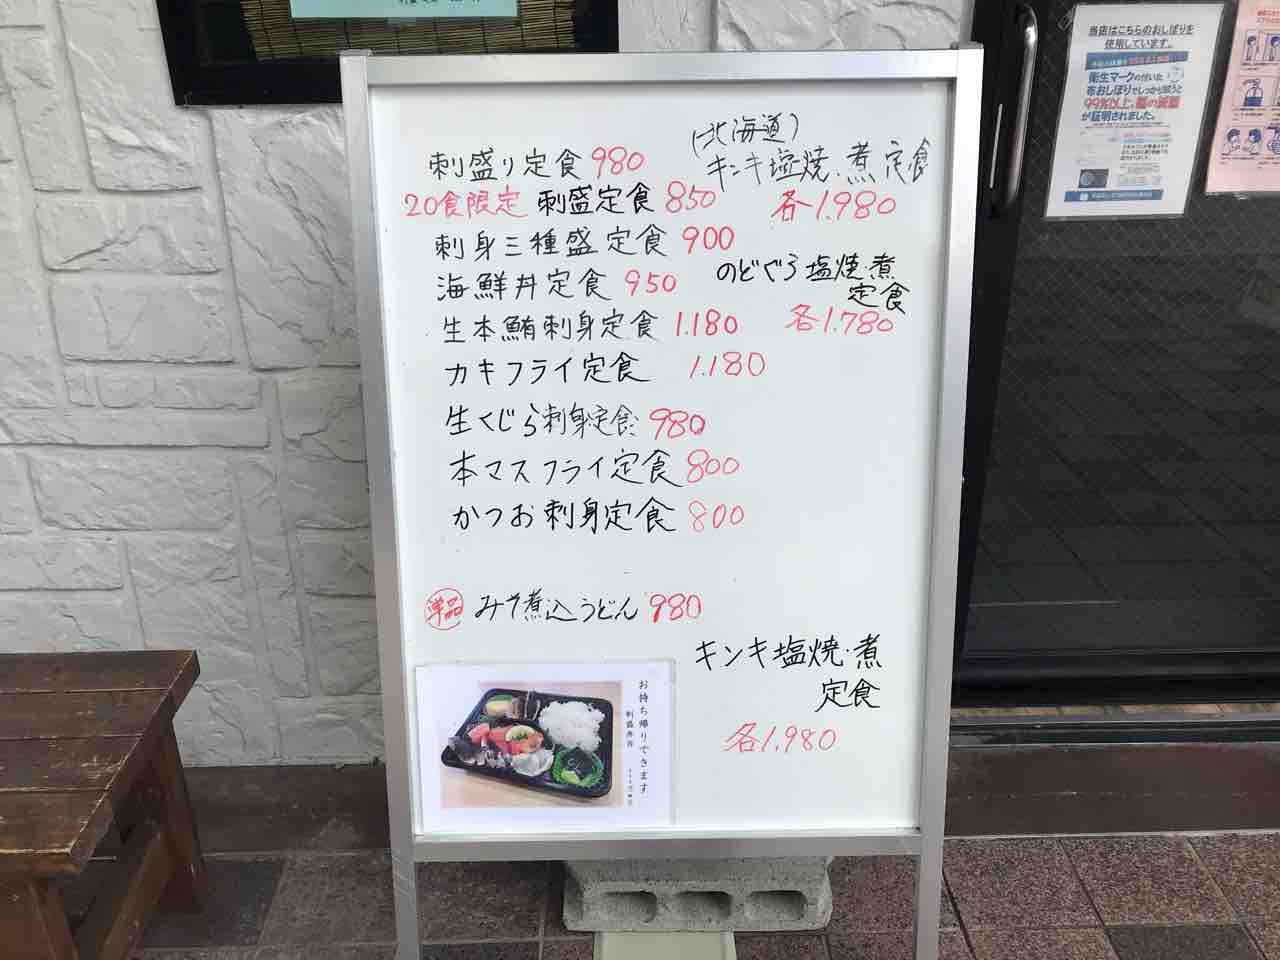 刺盛り定食 980
20食限定 刺盛定食 850
刺身三種盛定食 900
海鮮丼定食 950
生本鮪刺身定食 1.180
カキフライ定食 1.180
生くじら刺身定食 980
本マスフライ定食 800
かつお刺身定食 800
単品 みそ煮込うどん 980
(北海道)
キンキ塩焼・煮定食
各1.980
のどぐろ塩焼・煮
定食
各1.780
キンキ塩焼・煮
定食
各1,980
お持ち帰りできます
刺盛弁当
当店はこちらのおしぼりを
使用しています。
衛生マークの付いた
布おしぼりでしっかり拭うと
99%以上、菌の減少
が証明されました。